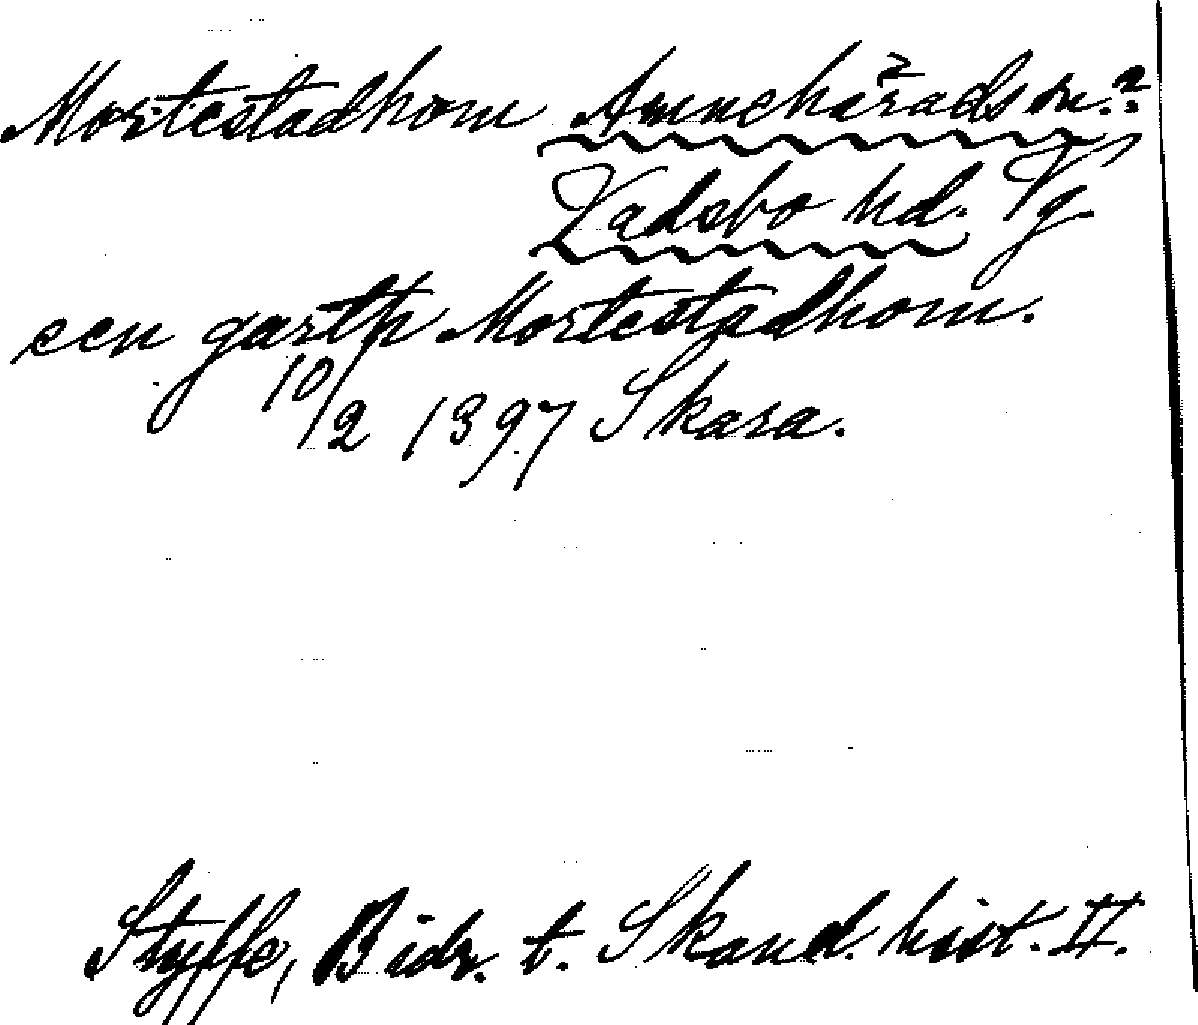 Mortestadhom Amnehärads sn.?
Vadsbo hd. Vg.
een garth Mortestadhom.
10/2 1397 Skara.
Styffe, Bidr. t. Skand. hist. II.